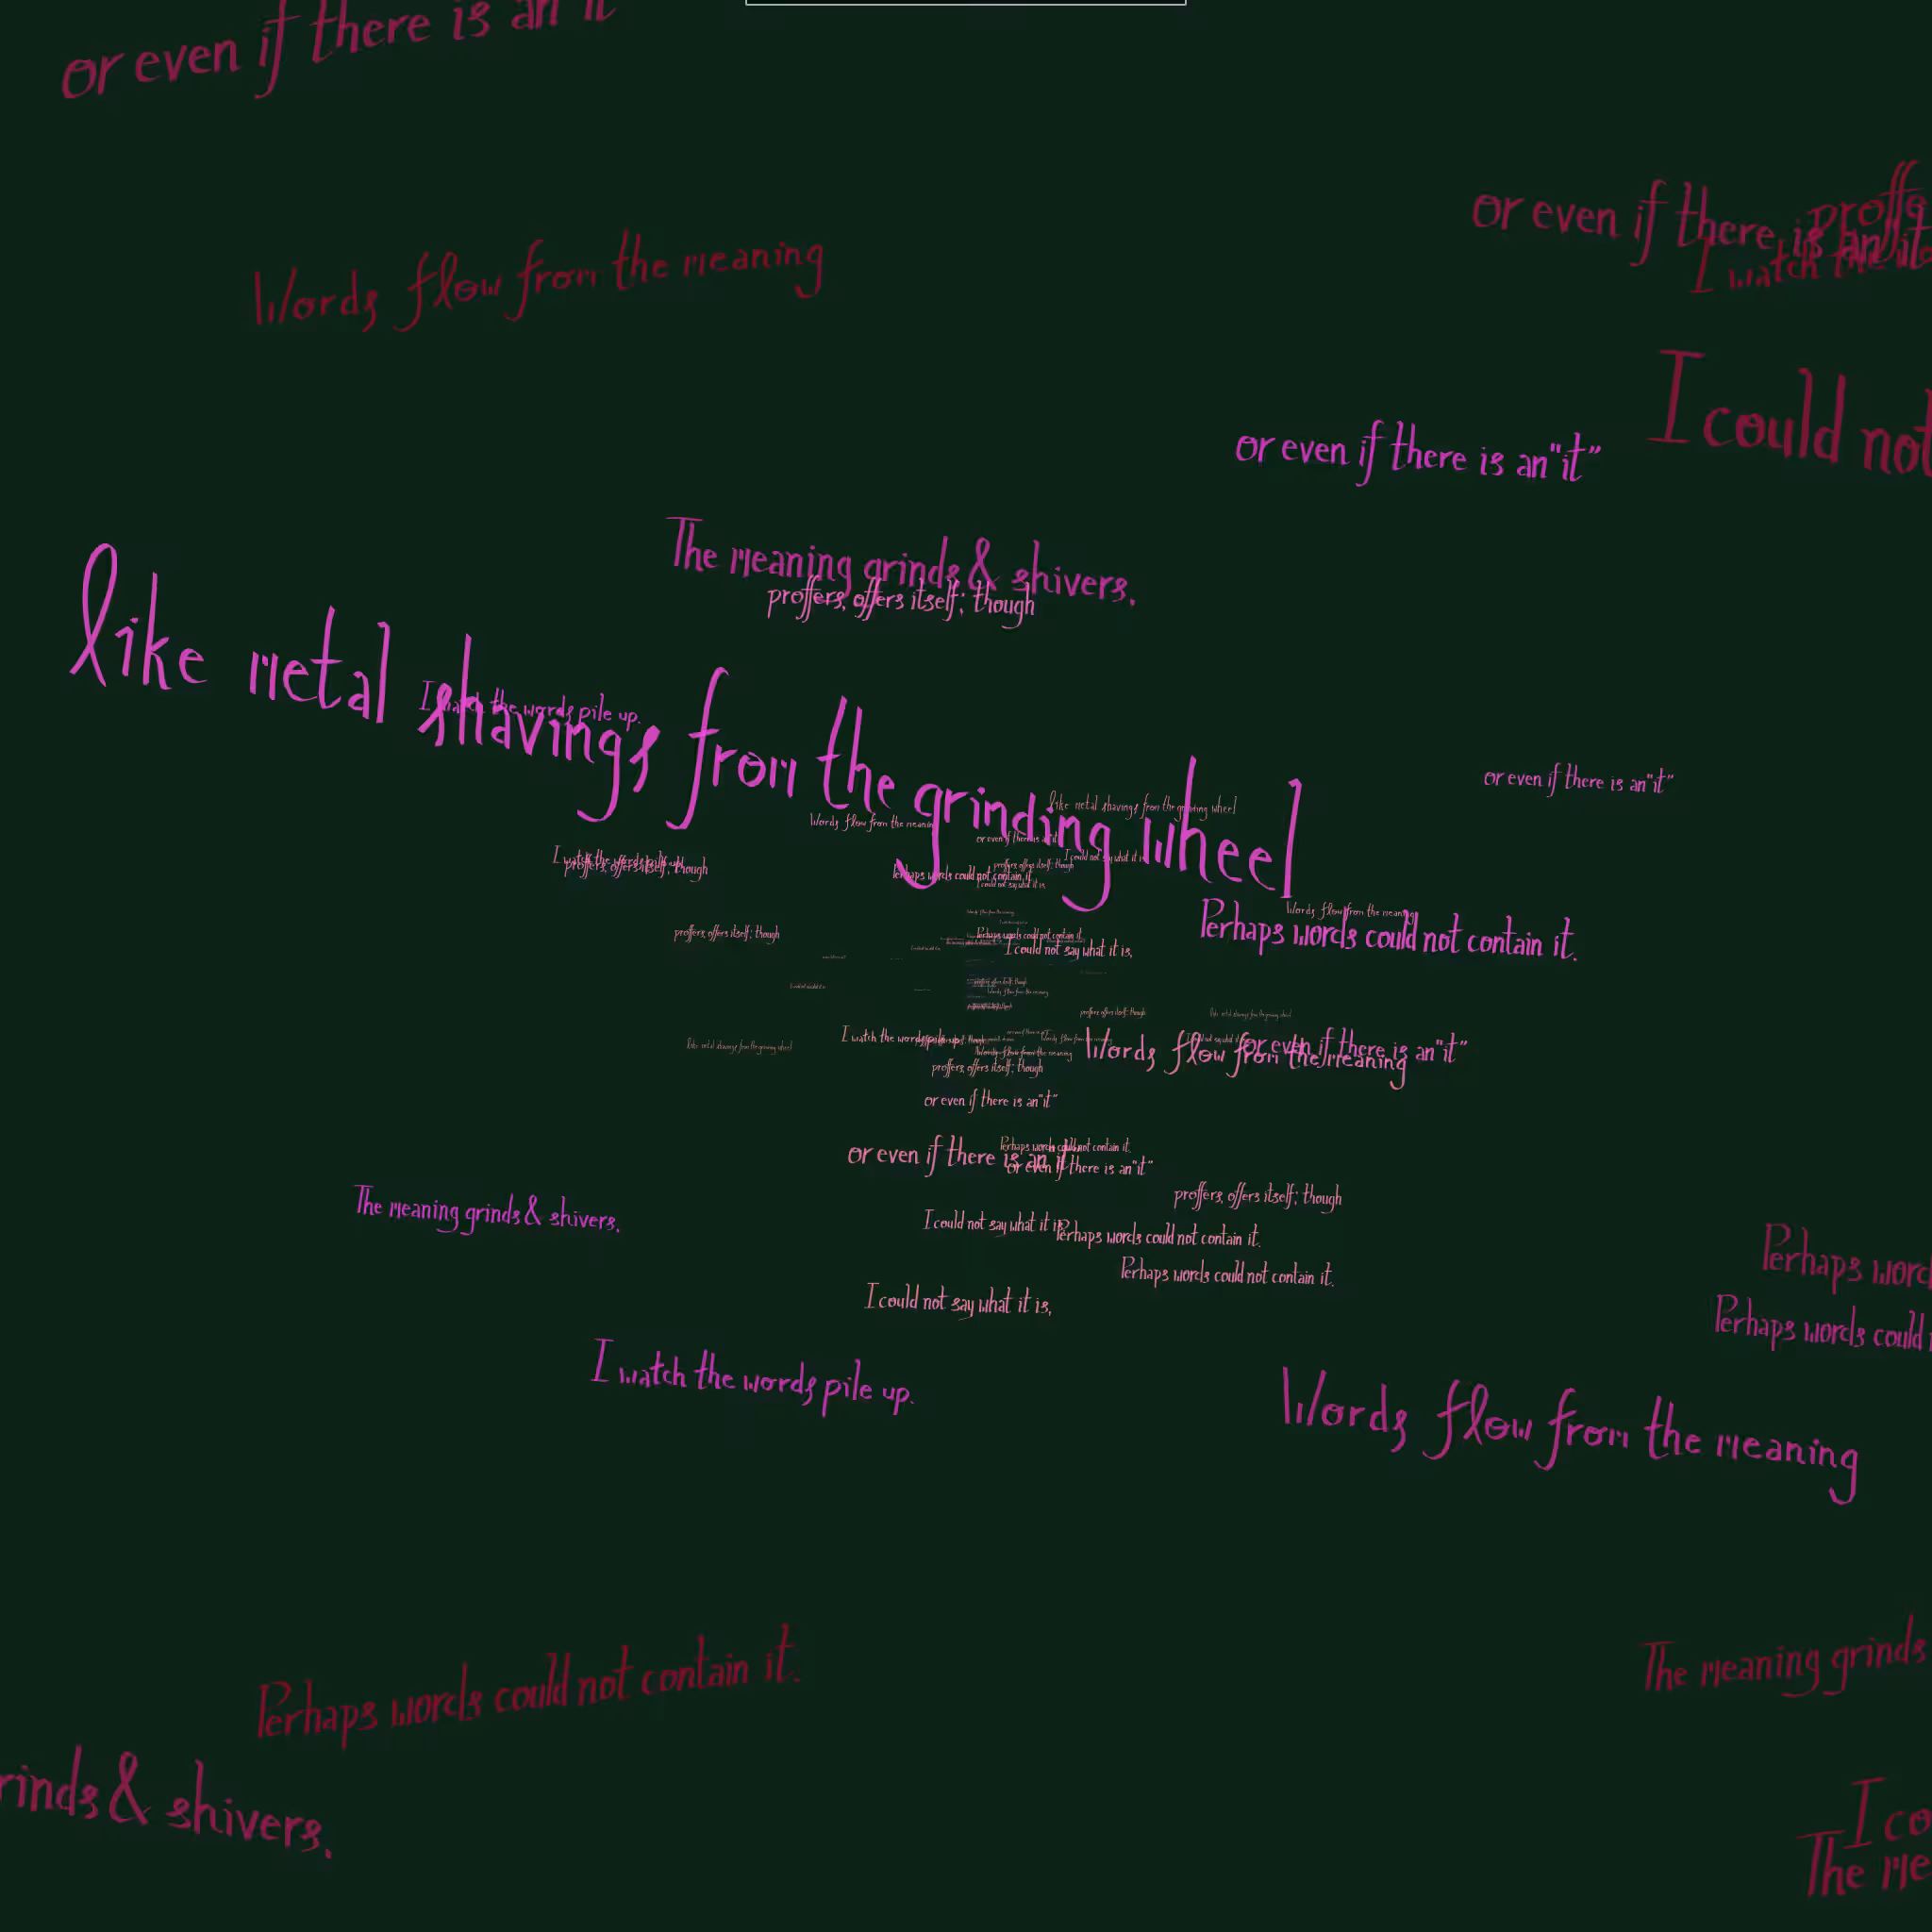 or even if there is an "it"
or even if there is an "it"
proffe
I watch the wo
Words flow from the meaning
I could not
or even if there is an "it"
The meaning grinds & shivers.
proffers, offers itself; though
like metal shavings from the grinding wheel
I watch the words pile up.
or even if there is an "it"
like metal shavings from the grinding wheel
Words flow from the meaning
or even if there is an "it"
I could not say what it is,
I watch the words pile up.
proffers, offers itself; though
proffers, offers itself; though
Perhaps words could not contain it.
I could not say what it is,
Words flow from the meaning
Perhaps words could not contain it.
proffers, offers itself; though
Perhaps words could not contain it.
I could not say what it is,
proffers, offers itself; though
Words flow from the meaning
proffers, offers itself; though
like metal shavings from the grinding wheel
I watch the words pile up.
Words flow from the meaning
Words flow from the meaning
or even if there is an "it"
like metal shavings from the grinding wheel
Words flow from the meaning
proffers, offers itself; though
or even if there is an "it"
or even if there is an "it"
Perhaps words could not contain it.
or even if there is an "it"
proffers, offers itself; though
The meaning grinds & shivers.
I could not say what it is,
Perhaps words could not contain it.
Perhaps word
Perhaps words could not contain it.
I could not say what it is,
Perhaps words could
I watch the words pile up.
Words flow from the meaning
The meaning grinds
Perhaps words could not contain it.
rinds & shivers.
I co
The me